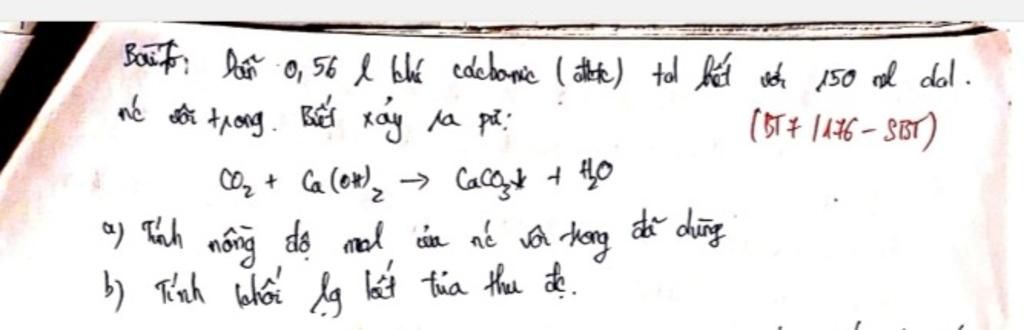 Bài 7: Dẫn 0,56 l khí cácbonic (đktc) td hết với 150 ml dd.
nc vôi trong. Biết xảy ra pư:
(BT7/176 - SBT)
CO₂ + Ca(OH)₂ → CaCO₃↓ + H₂O
a) Tính nồng độ mol của nc vôi trong đã dùng
b) Tính khối lg kết tủa thu đc.